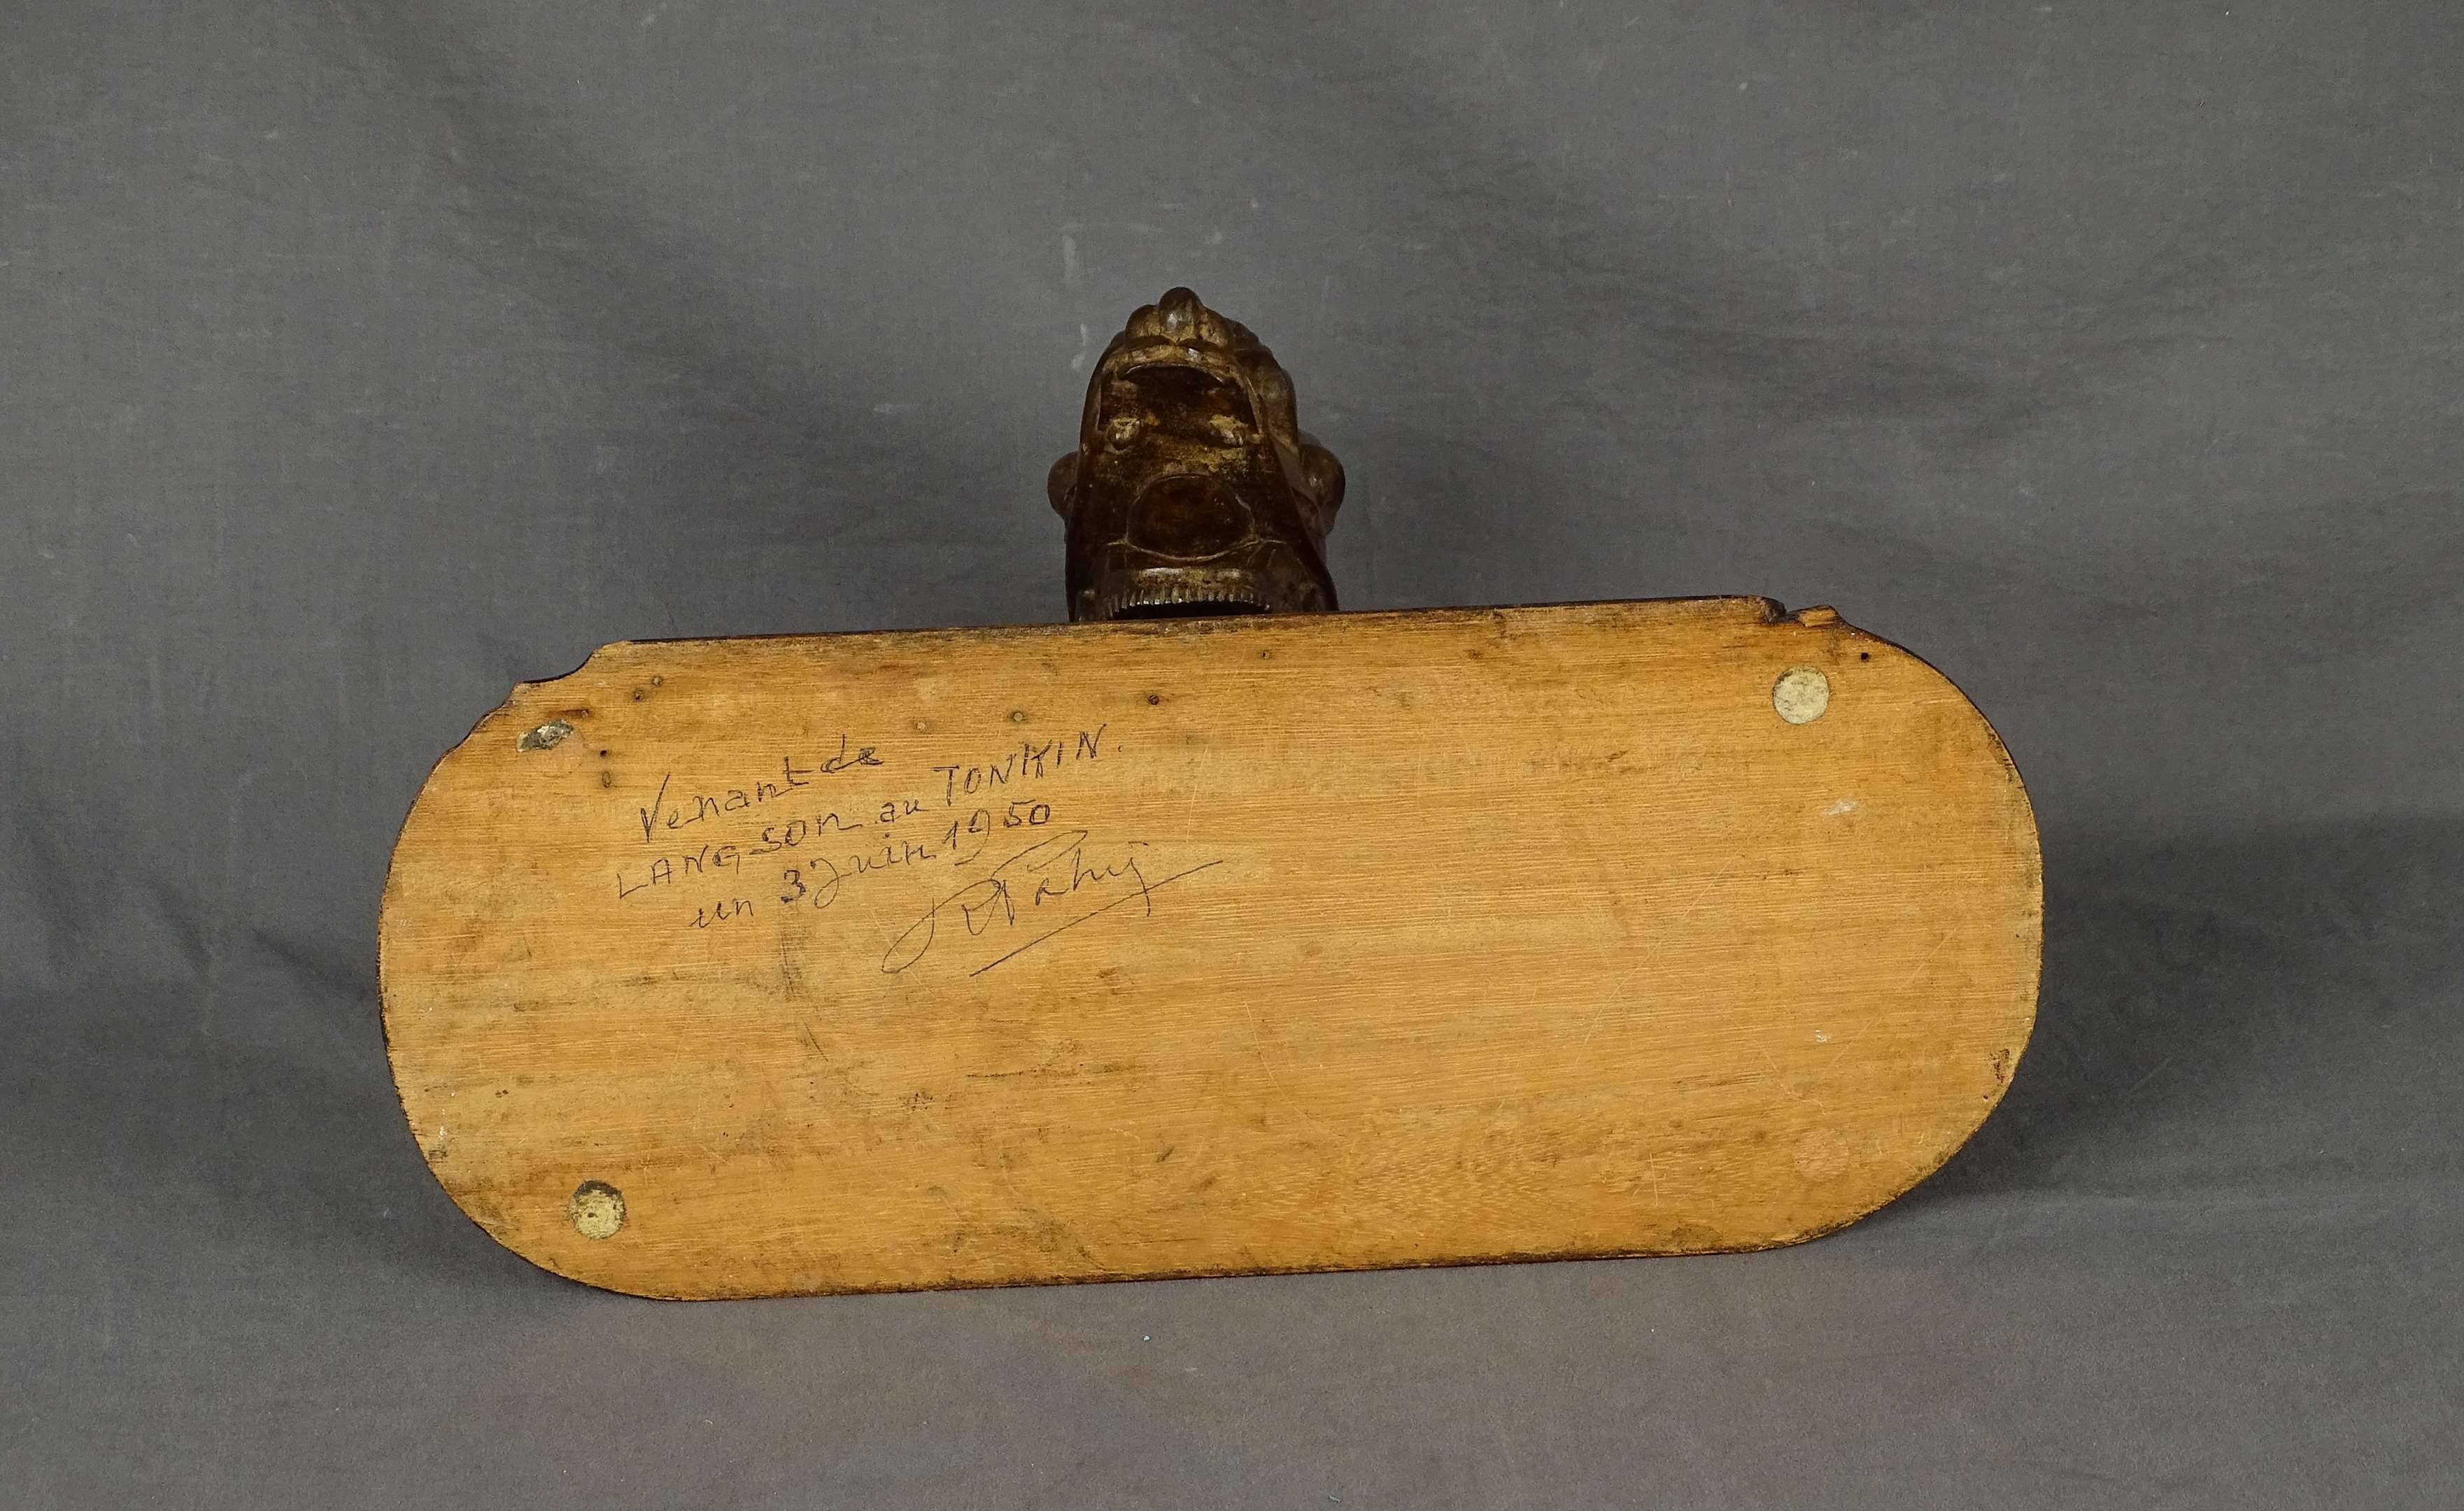 Venant de
LANGSON au TONKIN.
un 3 Juin 1950